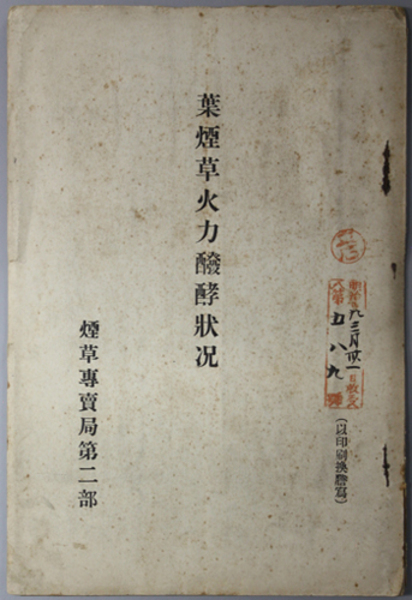 (以印刷換謄寫)
五八九
葉煙草火力醱酵狀况
煙草專賣局第二部